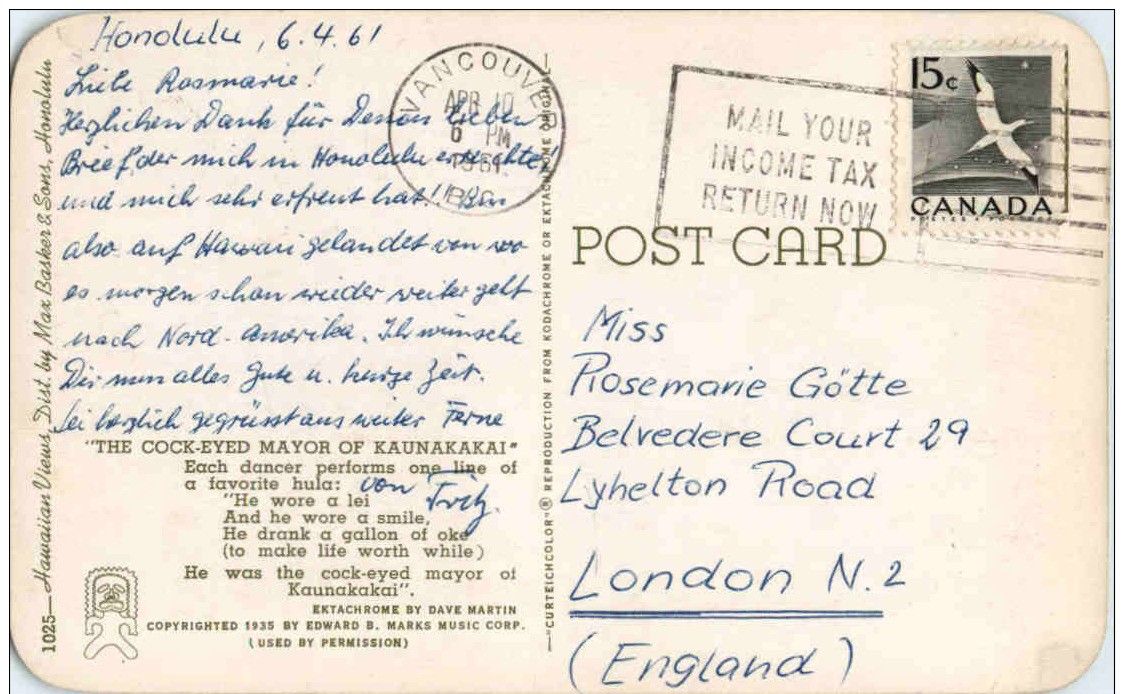 Honolulu, 6.4.61
Liebe Rosmarie!
Herzlichen Dank für Deinen lieben
Brief, der mich in Honolulu erreichte
und mich sehr erfreut hat!! Bin
also auf Hawaii gelandet von wo
es morgen schon wieder weiter geht
nach Nord-Amerika. Ich wünsche
Dir nun alles Gute u. Zeit.
Sei herzlich gegrüsst aus weiter Ferne
von Fritz.
"THE COCK-EYED MAYOR OF KAUNAKAKAI"
Each dancer performs one line of
a favorite hula:
"He wore a lei
And he wore a smile,
He drank a gallon of oke
(to make life worth while)
He was the cock-eyed mayor of
Kaunakakai".
EKTACHROME BY DAVE MARTIN
COPYRIGHTED 1935 BY EDWARD B. MARKS MUSIC CORP.
(USED BY PERMISSION)
1025—Hawaiian Views, Dist. by Max Basker & Sons, Honolulu
—"CURTEICHCOLOR"® REPRODUCTION FROM KODACHROME OR EKTACHROME ORIGINAL
VANCOUVER
APR 10
6 PM
1961
B.C.
MAIL YOUR
INCOME TAX
RETURN NOW
15¢
CANADA
POSTES POSTAGE
POST CARD
Miss
Rosemarie Götte
Belvedere Court 29
Lyhelton Road
London N.2
(England)